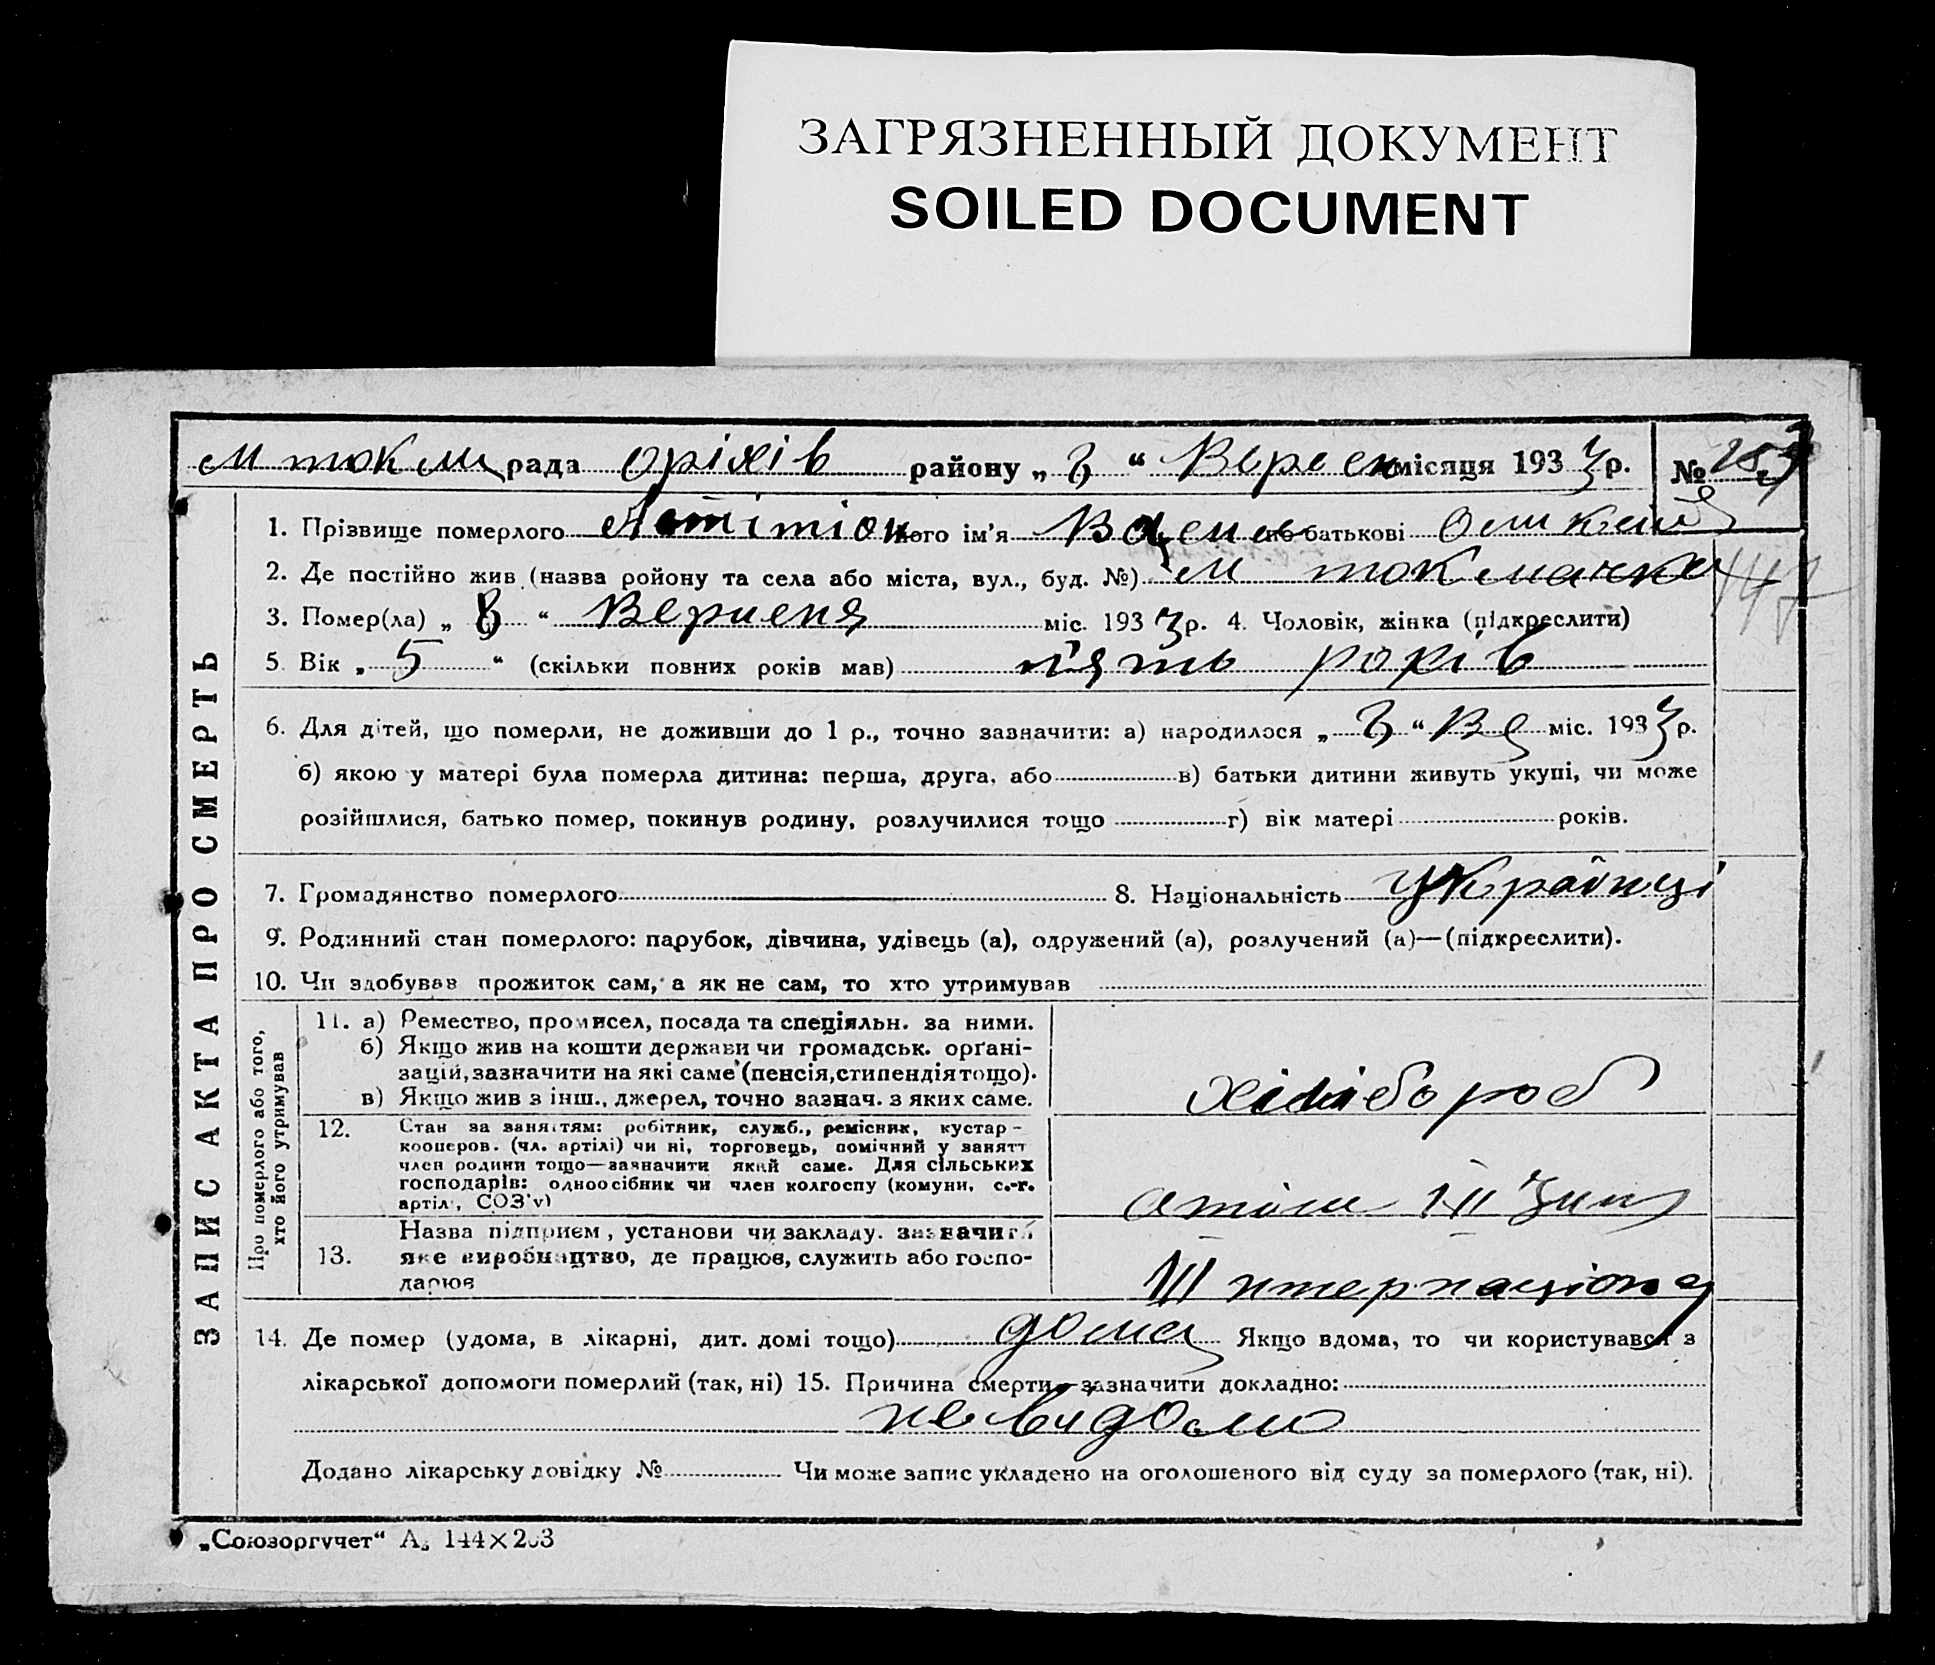 ЗАГРЯЗНЕННЫЙ ДОКУМЕНТ
SOILED DOCUMENT
м токм рада оріхів району „ 8 “ Версен місяця 1933 р. №
1. Прізвище померлого його ім'я по батькові
2. Де постійно жив (назва ройону та села або міста, вул., буд. №) м токмачка
3. Помер(ла) „ 8 “ Вериеня міс. 1933 р. 4. Чоловік, жінка (підкреслити)
5. Вік „ 5 “ (скільки повних років мав) п'ять років
6. Для дітей, що померли, не доживши до 1 р., точно зазначити: а) народилося „ 8 “ Ве міс. 1933 р.
б) якою у матері була померла дитина: перша, друга, або в) батьки дитини живуть укупі, чи може
розійшлися, батько помер, покинув родину, розлучилися тощо г) вік матері років.
7. Громадянство померлого 8. Національність Українці
9. Родинний стан померлого: парубок, дівчина, удівець (а), одружений (а), розлучений (а)—(підкреслити).
10. Чи здобував прожиток сам, а як не сам, то хто утримував
ЗАПИС АКТА ПРО СМЕРТЬ
Про померлого або того, хто його утримував
11. а) Ремество, промисел, посада та спеціяльн. за ними.
б) Якщо жив на кошти держави чи громадськ. орґані-
зацій, зазначити на які саме (пенсія, стипендія тощо).
в) Якщо жив з інш., джерел, точно зазнач. з яких саме.
хліібороб
12. Стан за заняттям: робітник, служб., ремісник, кустар-
кооперов. (чл. артілі) чи ні, торговець, помічний у занятт
член родини тощо—зазначити який саме. Для сільських
господарів: одноосібник чи член колгоспу (комуни, с.-г.
артілі, СОЗ'у)
13. Назва підприєм, установи чи закладу. зазначити
яке виробництво, де працює, служить або госпо-
дарює
III нтернаціона
14. Де помер (удома, в лікарні, дит. домі тощо) дома Якщо вдома, то чи користувався з
лікарської допомоги померлий (так, ні) 15. Причина смерти—зазначити докладно:
невидомо
Додано лікарську довідку № Чи може запис укладено на оголошеного від суду за померлого (так, ні).
„Союзоргучет“ А₅ 144×203